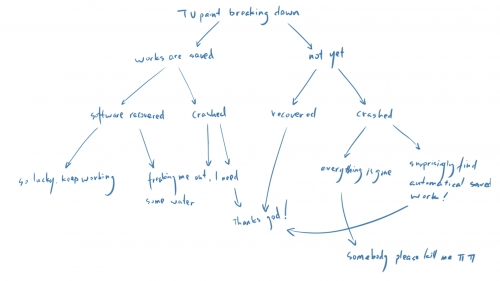 TV paint breaking down
works are saved
not yet
software recovered
crashed
recovered
crashed
so lucky. keep working
freaking me out. I need
some water
everything is gone
surprisingly find
automatical saved
work!
thanks god!
somebody please kill me TT TT